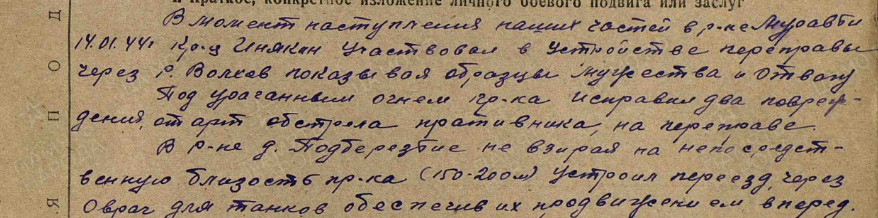 и краткое, конкретное изложение личного боевого подвига или заслуг
В момент наступления наших частей в р-не Муравьи
14.01.44г кр-ц Инякин участвовал в устройстве переправы
через р. Волхов показывая образцы мужества и отвагу
Под ураганным огнем пр-ка исправил два повреж-
дения, от арт обстрела пративника, на переправе.
В р-не д. Подберезтие не взирая на непосредст-
венную близость пр-ка (150-200м) устроил переезд через
Овраг для танков обеспечив их продвижением вперед.
П О Д
Я